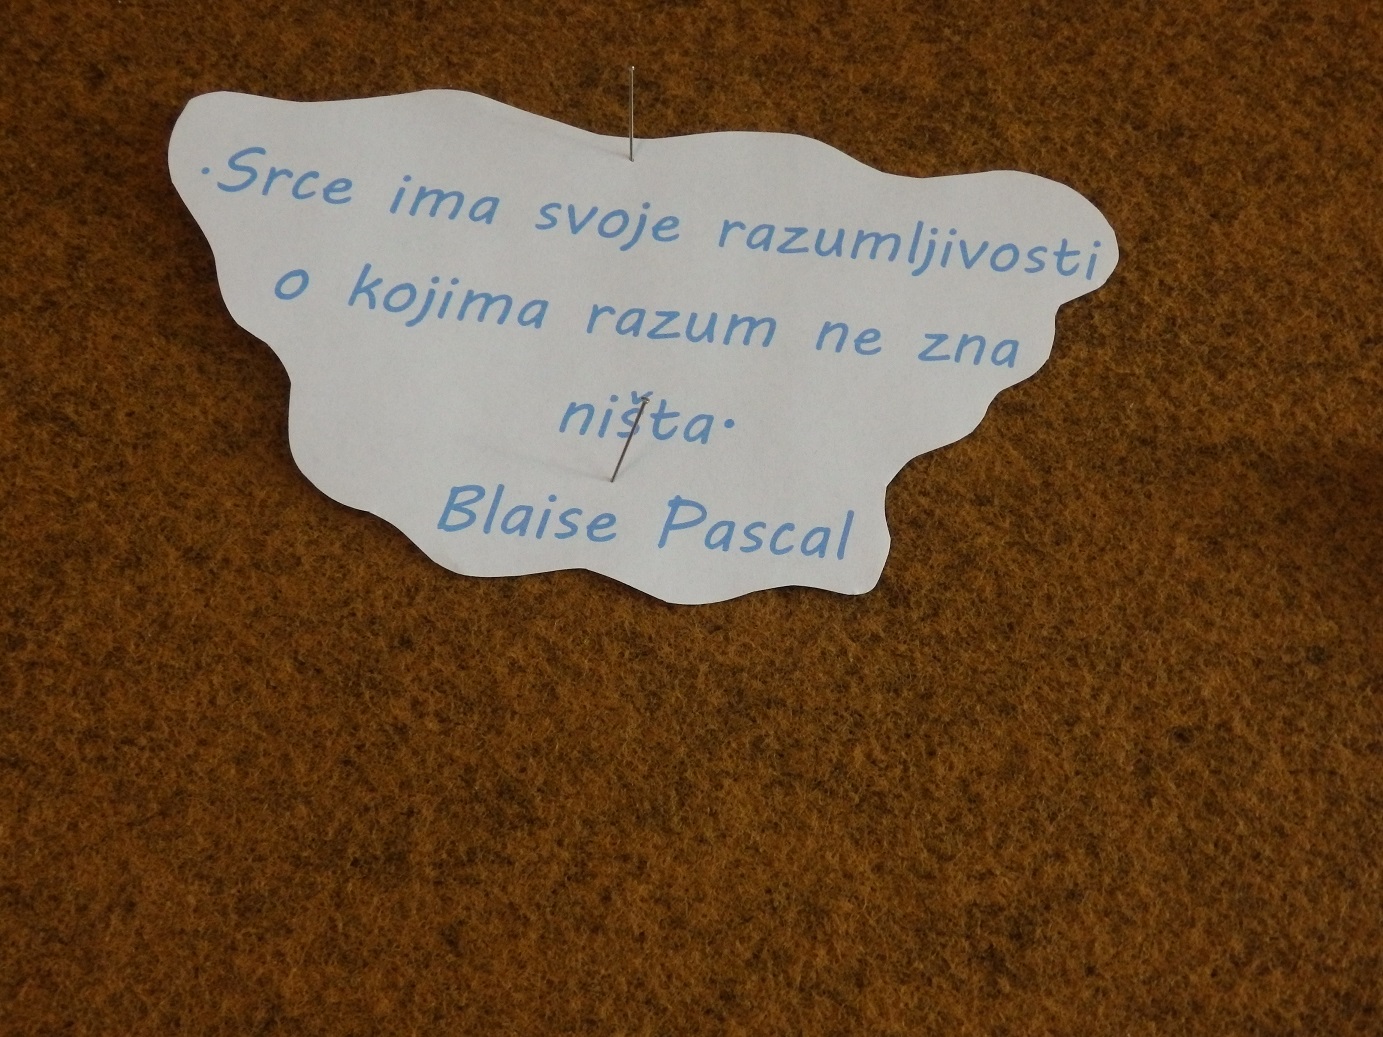 ·Srce ima svoje razumljivosti
o kojima razum ne zna
ništa·
Blaise Pascal